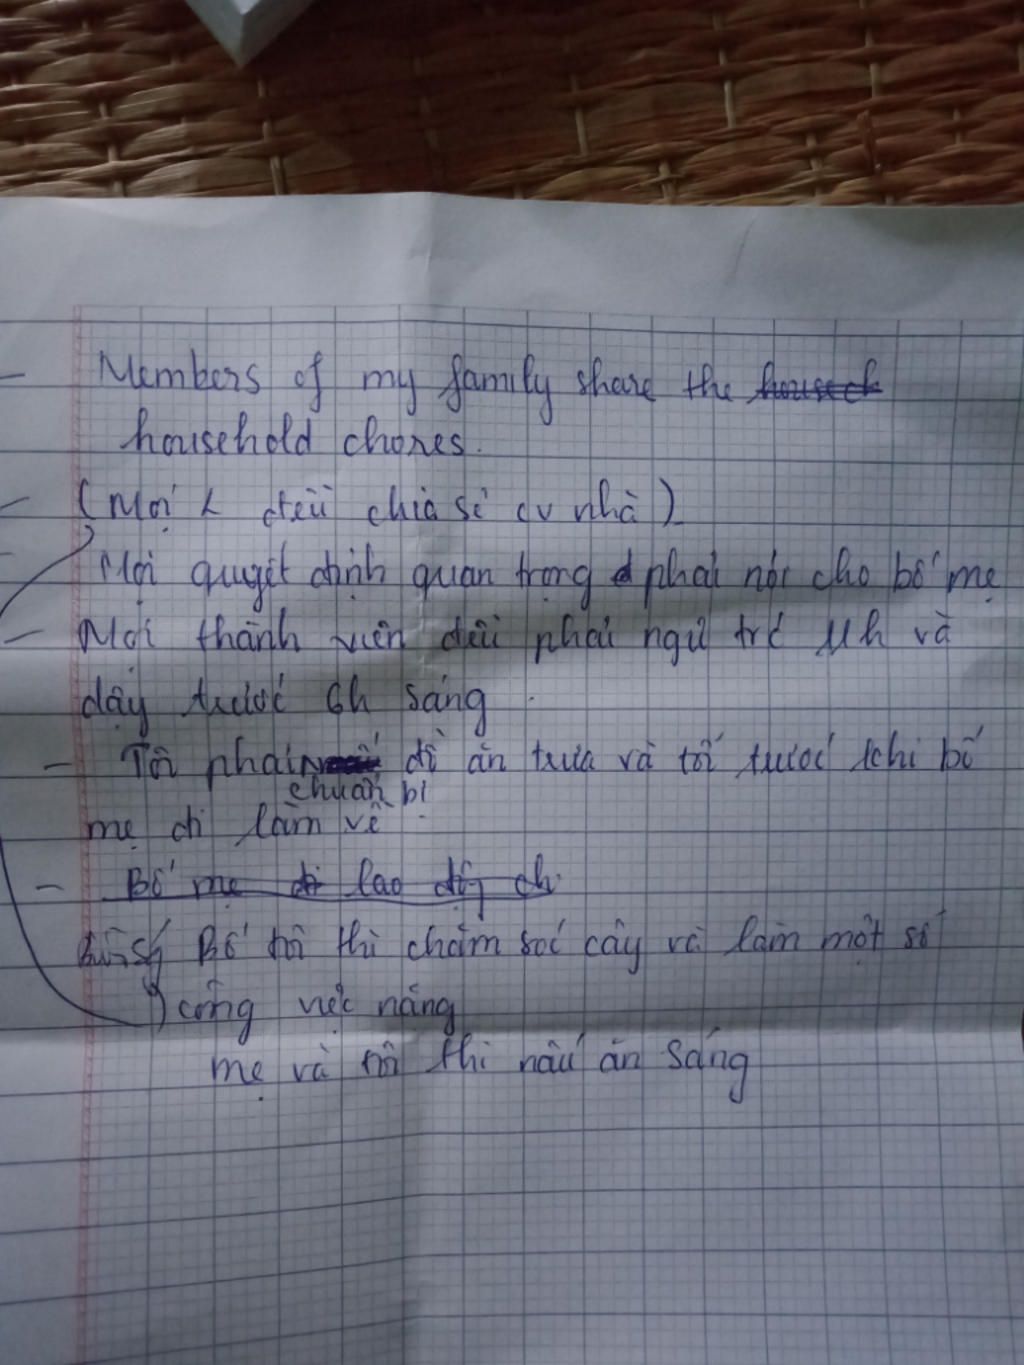 - Members of my family share the
household chores.
- (Mọi < đều chia sẻ cv nhà)
Mọi quyết định quan trọng phải nói cho bố mẹ
- Mọi thành viên đều phải ngủ trc 11h và
dậy trước 6h sáng.
- Tôi phải đồ ăn trưa và tối trước khi bố
chuẩn bị
mẹ đi làm về
- Bố mẹ đi lao động
Bố tôi thì chăm sóc cây và làm một số
công việc nặng
mẹ và tôi thì nấu ăn sáng